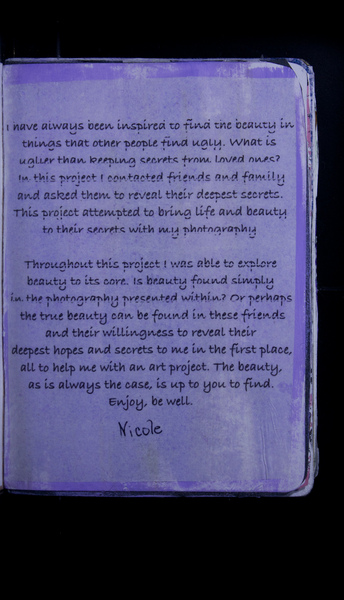 I have always been inspired to find the beauty in
things that other people find ugly. What is
uglier than keeping secrets from loved ones?
In this project I contacted friends and family
and asked them to reveal their deepest secrets.
This project attempted to bring life and beauty
to their secrets with my photography
Throughout this project I was able to explore
beauty to its core. Is beauty found simply
in the photography presented within? Or perhaps
the true beauty can be found in these friends
and their willingness to reveal their
deepest hopes and secrets to me in the first place,
all to help me with an art project. The beauty,
as is always the case, is up to you to find.
Enjoy, be well.
Nicole